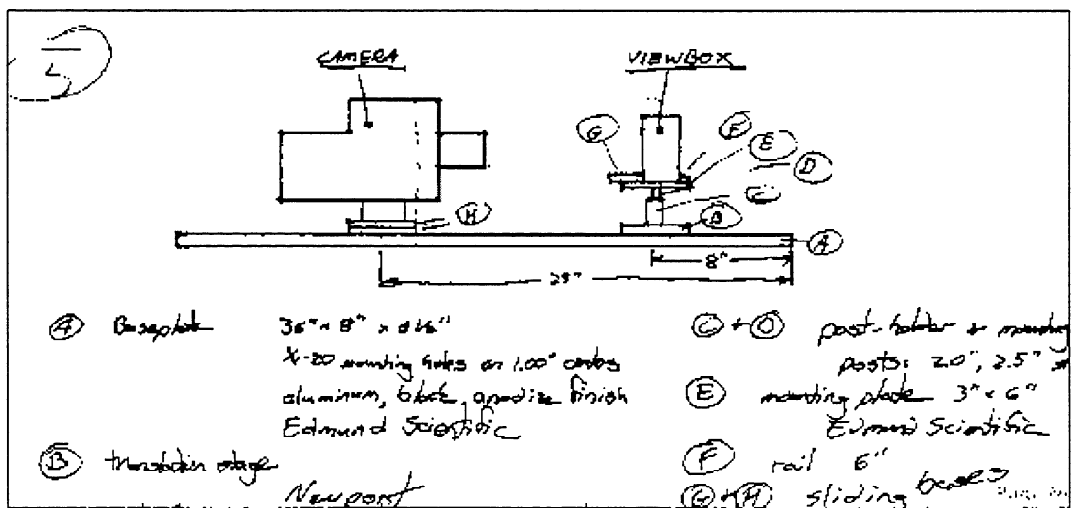 CAMERA
VIEWBOX
G
F
E
D
C
H
B
A
8"
A Baseplate 36" x 8" x
mounting holes on 1.00" centers
aluminum, black anodize finish
Edmund Scientific
B translation stage
Newport
C + D post-holder + mounting
posts: 2.0", 2.5"
E mounting plate 3" x 6"
Edmund Scientific
F rail 6"
G + H sliding bases